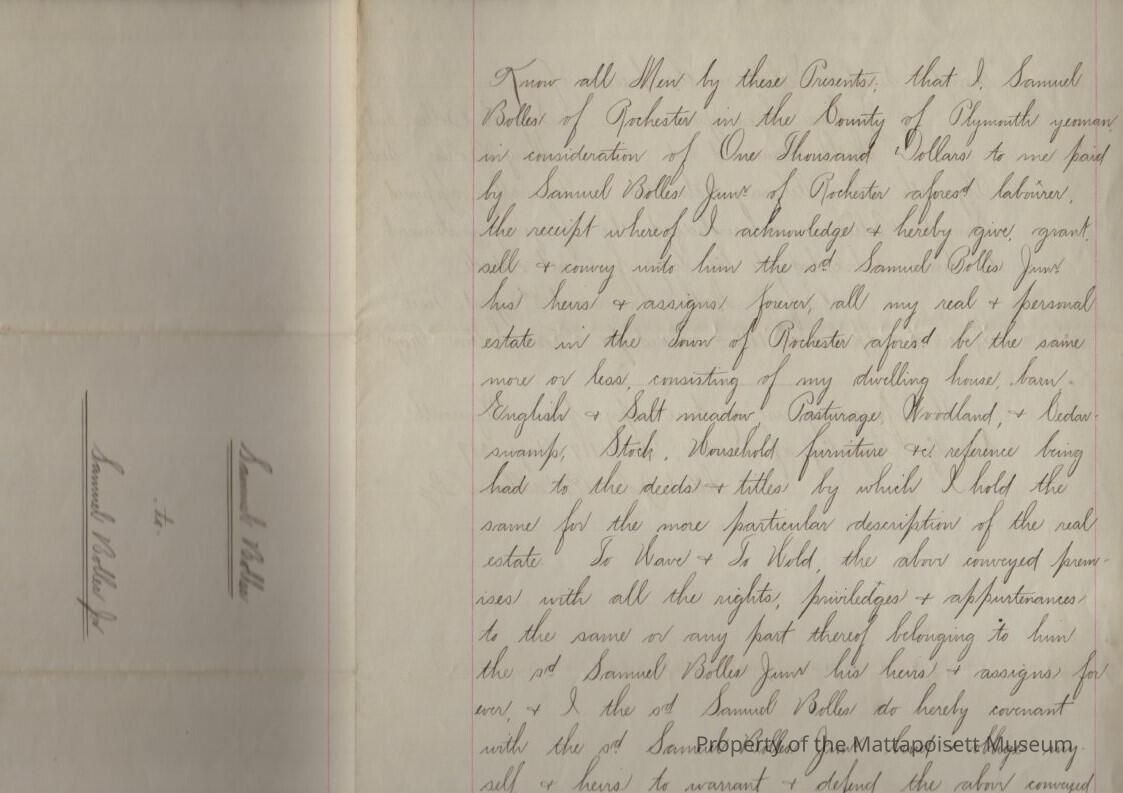 Know all Men by these Presents; that I, Samuel
Bolles of Rochester in the County of Plymouth yeoman
in consideration of One Thousand Dollars to me paid
by Samuel Bolles Junr of Rochester aforesd labourer,
the receipt whereof I acknowledge & hereby give, grant,
sell & convey unto him the sd Samuel Bolles Junr
his heirs & assigns forever, all my real & personal
estate in the Town of Rochester aforesd be the same
more or less, consisting of my dwelling house, barn.
English & Salt meadow, Pasturage, Woodland, & Cedar-
swamp, Stock, Household furniture &c! reference being
had to the deeds & titles by which I hold the
same for the more particular description of the real
estate. To Have & To Hold, the above conveyed prem-
ises with all the rights, priviledges & appurtenances
to the same or any part thereof belonging to him
the sd Samuel Bolles Junr his heirs & assigns for
ever, & I the sd Samuel Bolles do hereby covenant
with the sd Samuel Bolles Junr and oblige my
self & heirs to warrant & defend the above conveyed
Samuel Bolles
-to-
Samuel Bolles Jr
Property of the Mattapoisett Museum